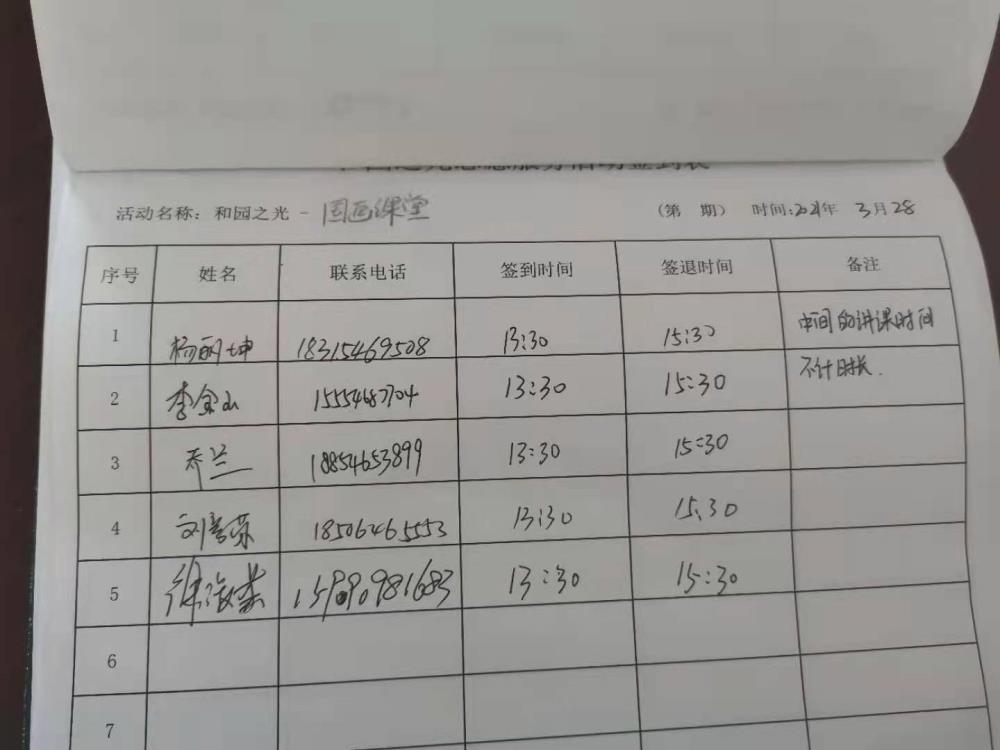 活动名称：和园之光 - 国画课堂 （第 期） 时间：2021年 3月28
序号 姓名 联系电话 签到时间 签退时间 备注
1 杨丽坤 18315469508 13:30 15:30 中间的讲课时间
不计时长.
2 李金山 15554687704 13:30 15:30
3 乔兰 18854653899 13:30 15:30
4 18506465553 13:30 15:30
5 13:30 15:30
6
7